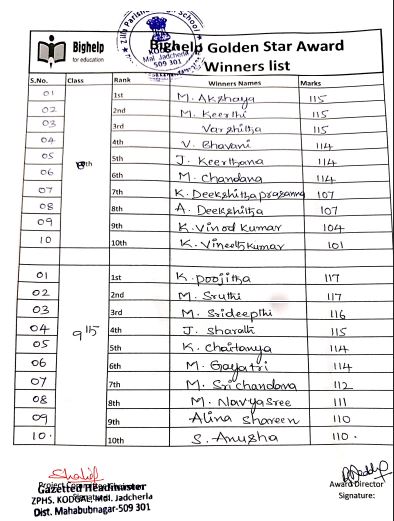 Zilla Parishad School
KODGAL
Mdl. Jadcherla
509 301
Bighelp
for education
Bighelp Golden Star Award
Winners list
S.No. Class Rank Winners Names Marks
01 1st M. Akshaya 115
02 2nd M. Keerthi 115
03 3rd Varshitha 115
04 4th V. Bhavani 114
05 8th 5th J. Keerthana 114
06 6th M. Chandana 114
07 7th K. Deekshitha prasanna 107
08 8th A. Deekshitha 107
09 9th K. Vinod Kumar 104
10 10th K. Vineeth Kumar 101
01 1st K. Poojitha 117
02 2nd M. Sruthi 117
03 3rd M. Srideepthi 116
04 9th 4th J. Sharath 115
05 5th K. Chaitanya 114
06 6th M. Gayatri 114
07 7th M. Srichandana 112
08 8th M. Navyasree 111
09 9th Alina Shareen 110
10. 10th S. Anusha 110.
Award Director
Gazetted Headmaster
Signature:
ZPHS. KODGAL, Mdl. Jadcherla
Dist. Mahabubnagar-509 301